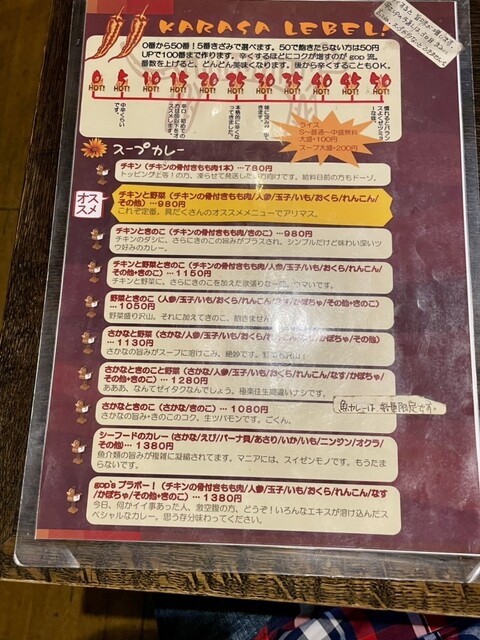 KARASA LEBEL!
0番から50番！5番きざみで選べます。50で飽きたらない方は50円
UPで100番まで作れます。辛くするほどにコクが増すのが gop 流。
番数を上げると、どんどん美味くなります。後から辛くすることもOK。
0 5 10 15 20 25 30 35 40 45 50
HOT! HOT! HOT! HOT! HOT! HOT! HOT! HOT! HOT! HOT! HOT!
ライス
S～普通～中盛無料
大盛・100円
スープ大盛・200円
スープカレー
チキン（チキンの骨付きもも肉1本）…780円
オススメ
チキンと野菜（チキンの骨付きもも肉/人参/玉子/いも/おくら/れんこん/
その他）…980円
これぞ定番。具だくさんのオススメメニューでアリマス。
チキンときのこ（チキンの骨付きもも肉/きのこ）…980円
チキンのダシに、さらにきのこの旨みがプラスされ、シンプルだけど味わい深いツ
ウ好みのカレー。
チキンと野菜ときのこ（チキンの骨付きもも肉/人参/玉子/いも/おくら/れんこん/
その他+きのこ）…1150円
チキンと野菜に、さらにきのこを加えた欲張りな一品。ウマいです。
野菜ときのこ（人参/玉子/いも/おくら/れんこん/なす/かぼちゃ/その他+きのこ）
…1050円
野菜盛り沢山。それに加えてきのこ、飽きません
さかなと野菜（さかな/人参/玉子/いも/おくら/れんこん/なす/かぼちゃ/その他）
…1130円
さかなの旨みがスープに溶けこみ、絶妙です。野菜も沢山！
さかなときのこと野菜（さかな/人参/玉子/いも/おくら/れんこん/なす/かぼちゃ/
その他+きのこ）…1280円
あああ、なんてゼイタクなんでしょう。極楽往生間違いナシです。
さかなときのこ（さかな/きのこ）…1080円
さかなの旨みときのこのコク。生ツバモンです。ごくん。
魚カレーは、数量限定です。
シーフードのカレー（さかな/えび/パーナ貝/あさり/いか/いも/ニンジン/オクラ/
その他）…1380円
魚介類の旨みが複雑に凝縮されてます。マニアには、スイゼンモノです。もうたま
らないです。
gop's ブラボー！（チキンの骨付きもも肉/人参/玉子/いも/おくら/れんこん/なす
/かぼちゃ/その他+きのこ）…1380円
今日、何かイイ事あった人、激空腹の方、どうぞ！いろんなエキスが溶け込んだス
ペシャルなカレー。思う存分味わってください。